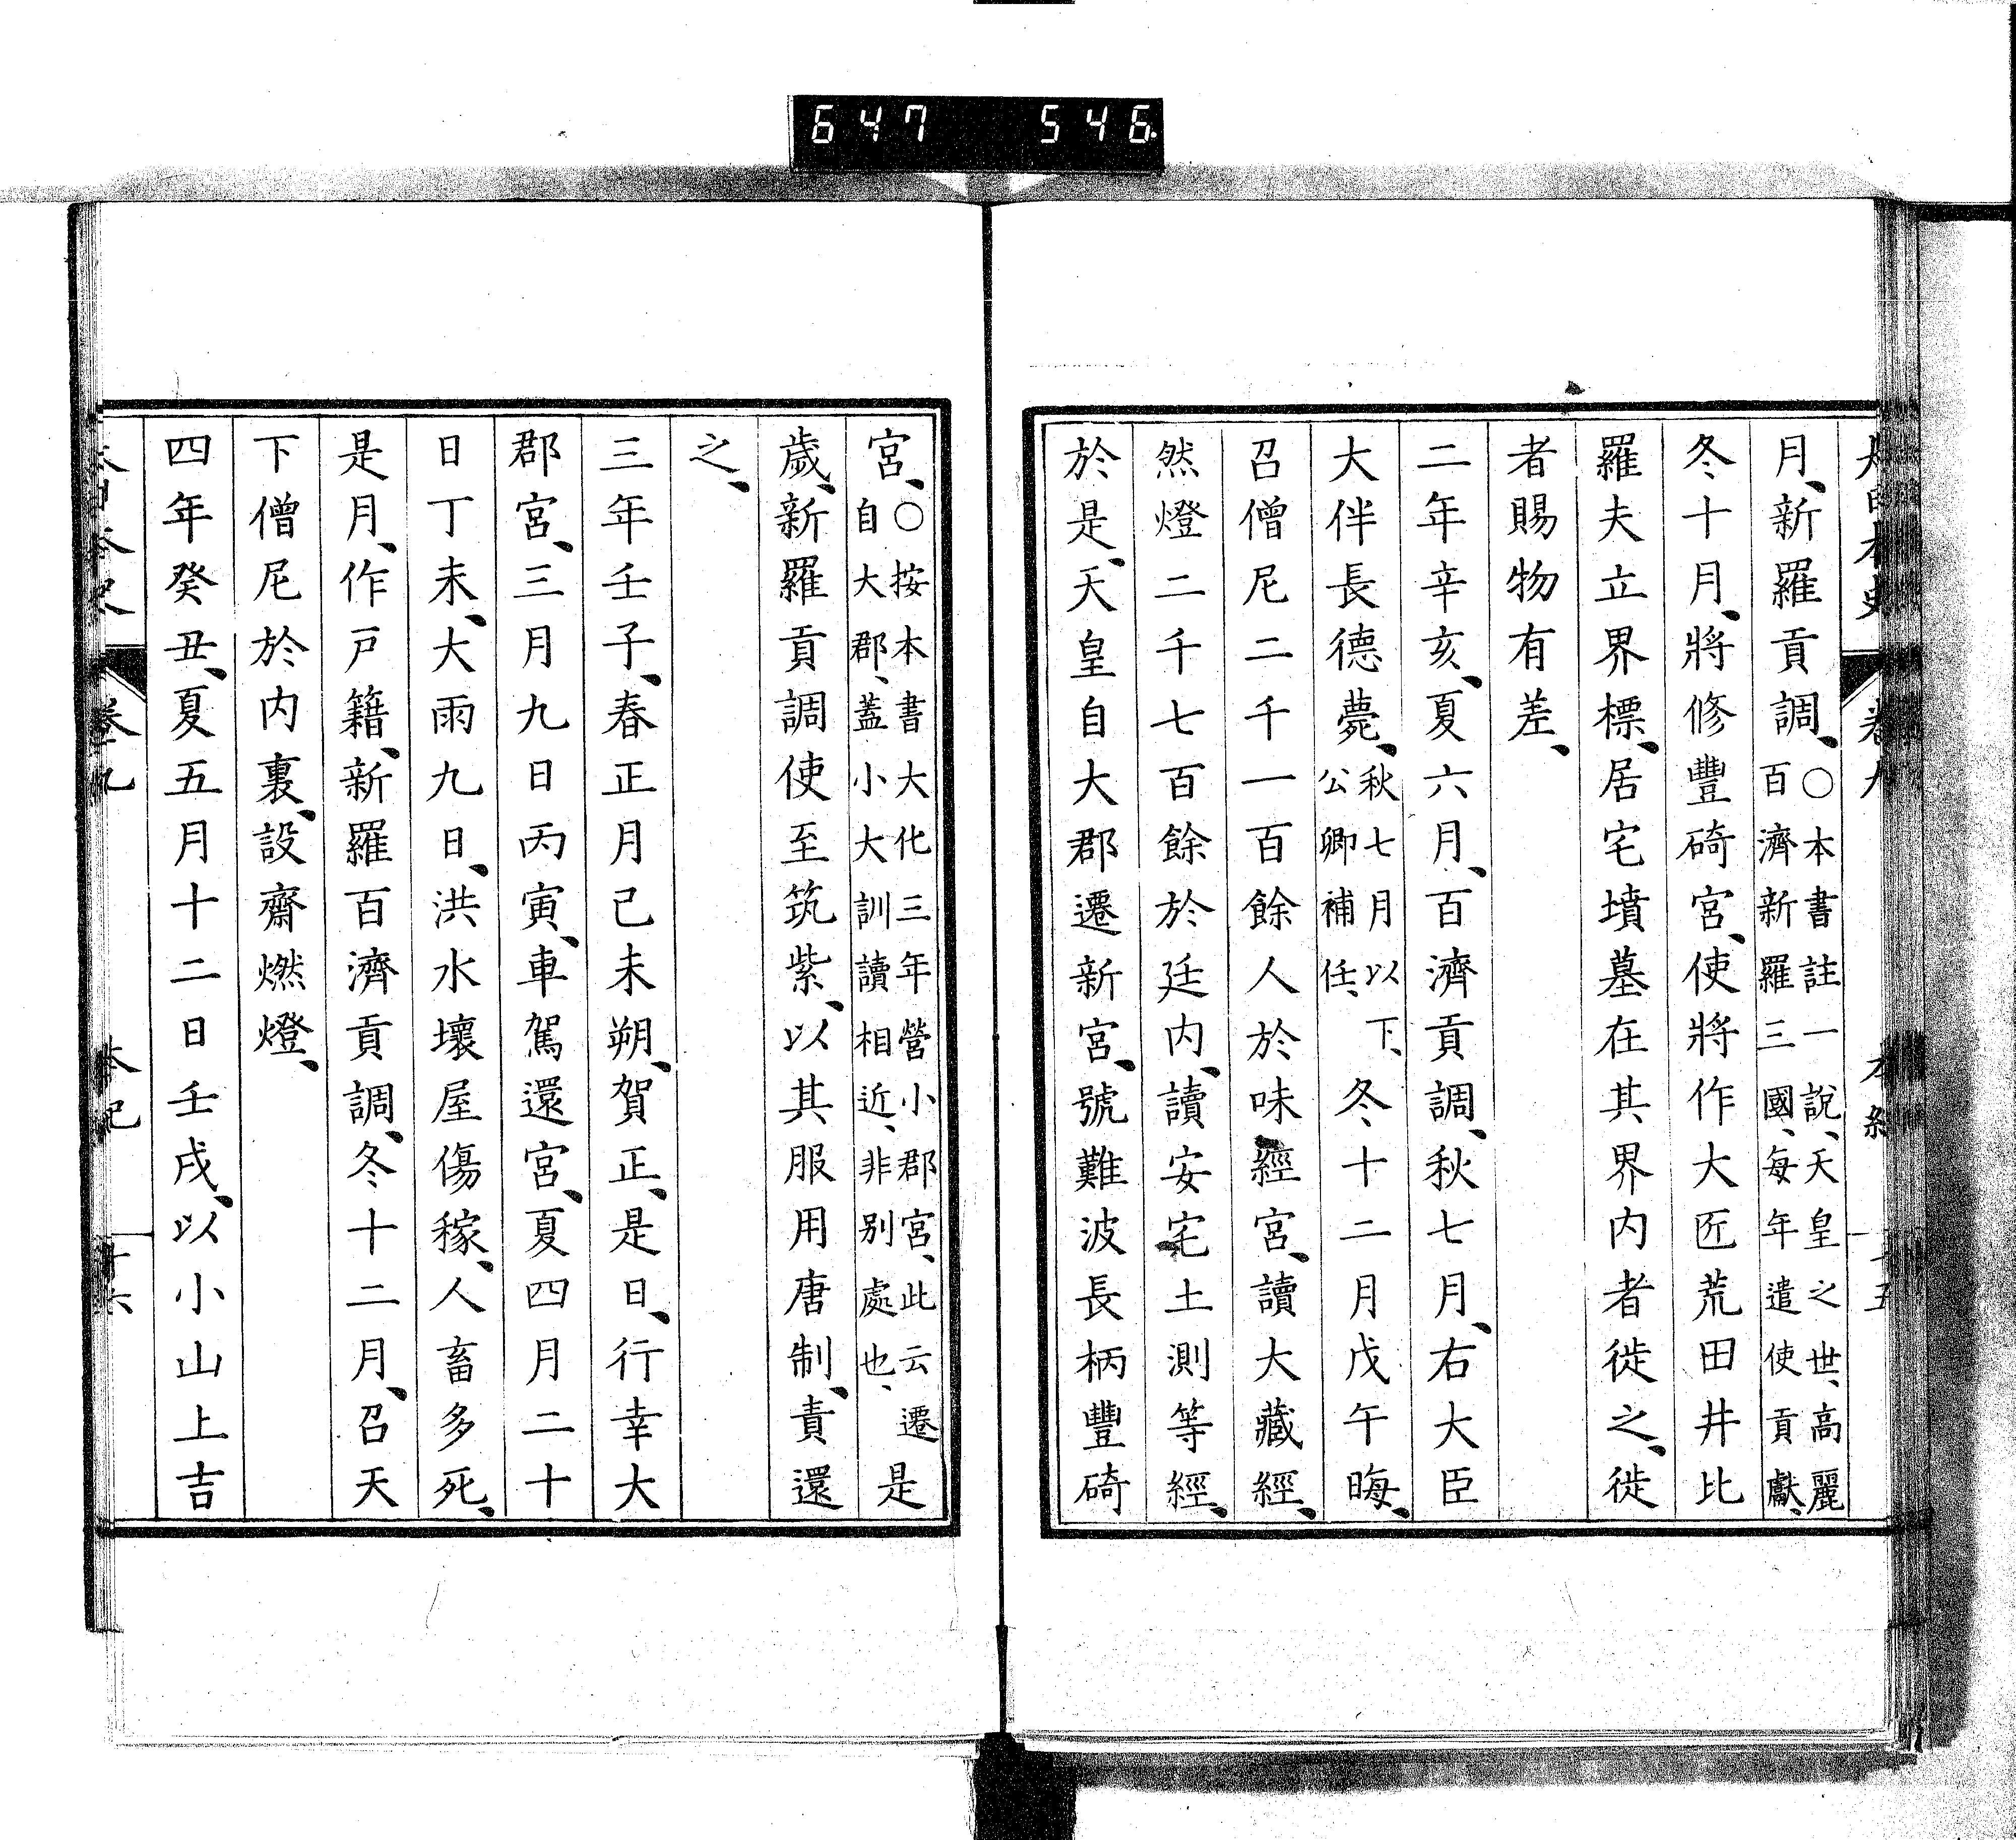 647 546
大日本史 卷九 本紀 十五
月、新羅貢調、○本書註一說、天皇之世、高麗百濟新羅三國、每年遣使貢獻、
冬十月、將修豐碕宮、使將作大匠荒田井比
羅夫立界標、居宅墳墓在其界內者徙之、徙
者賜物有差、
二年辛亥、夏六月、百濟貢調、秋七月、右大臣
大伴長德薨、秋七月以下、公卿補任、冬十二月戊午晦、
召僧尼二千一百餘人於味經宮、讀大藏經、
然燈二千七百餘於廷內、讀安宅土測等經、
於是、天皇自大郡遷新宮、號難波長柄豐碕
宮、○按本書大化三年營小郡宮、此云遷自大郡、蓋小大訓讀相近、非別處也、是
歲、新羅貢調使至筑紫、以其服用唐制、責還
之、
三年壬子、春正月己未朔、賀正、是日、行幸大
郡宮、三月九日丙寅、車駕還宮、夏四月二十
日丁未、大雨九日、洪水壞屋傷稼、人畜多死、
是月、作戶籍、新羅百濟貢調、冬十二月、召天
下僧尼於內裏、設齋燃燈、
四年癸丑、夏五月十二日壬戌、以小山上吉
大日本史 卷九 本紀 十六